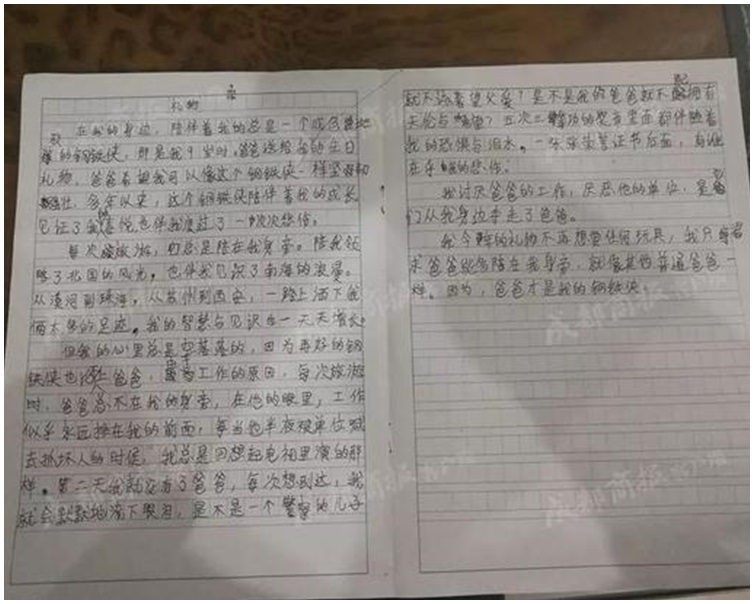 礼物
在我的身边，陪伴着我的总是一个
的钢铁侠，那是我9岁时，爸爸送给我的生日
礼物，爸爸希望我可以像这个钢铁侠一样坚
强壮，多年以来，这个钢铁侠陪伴着我的成长
见证了我的喜悦也伴我渡过了一次次悲伤。
每次旅游，它总是陪在我身旁。陪我领
略了北国的风光，也伴我见识了南海的浪漫。
从漠河到珠海，从苏州到西安，一路上洒下我
俩太多的足迹。我的智慧与见识也一天天增长。
但我的心里总是空荡荡的，因为再好的钢
铁侠也 爸爸，因为工作的原因，每次旅游
时，爸爸总不在我的身旁，在他的眼里，工作
似乎永远排在我的前面，每当他半夜被单位喊
去抓坏人的时候，我总是回想起电视里演的那
样。第二天我就没有了爸爸，每次想到这，我
就会默默地流下眼泪，是不是一个警察的儿子
就不该奢望父爱？是不是我的爸爸就不配拥有
天伦与 ？五次三等功的背后里面都伴随着
我的恐惧与泪水。一张张荣誉证书后面，有谁
在乎 的悲伤。
我讨厌爸爸的工作，厌恶他的单位，是
们从我身边夺走了爸爸。
我今年的礼物不再想要任何玩具，我只
求爸爸能多陪在我身旁，就像其他普通爸爸一
样。因为，爸爸才是我的钢铁侠。
成都商报